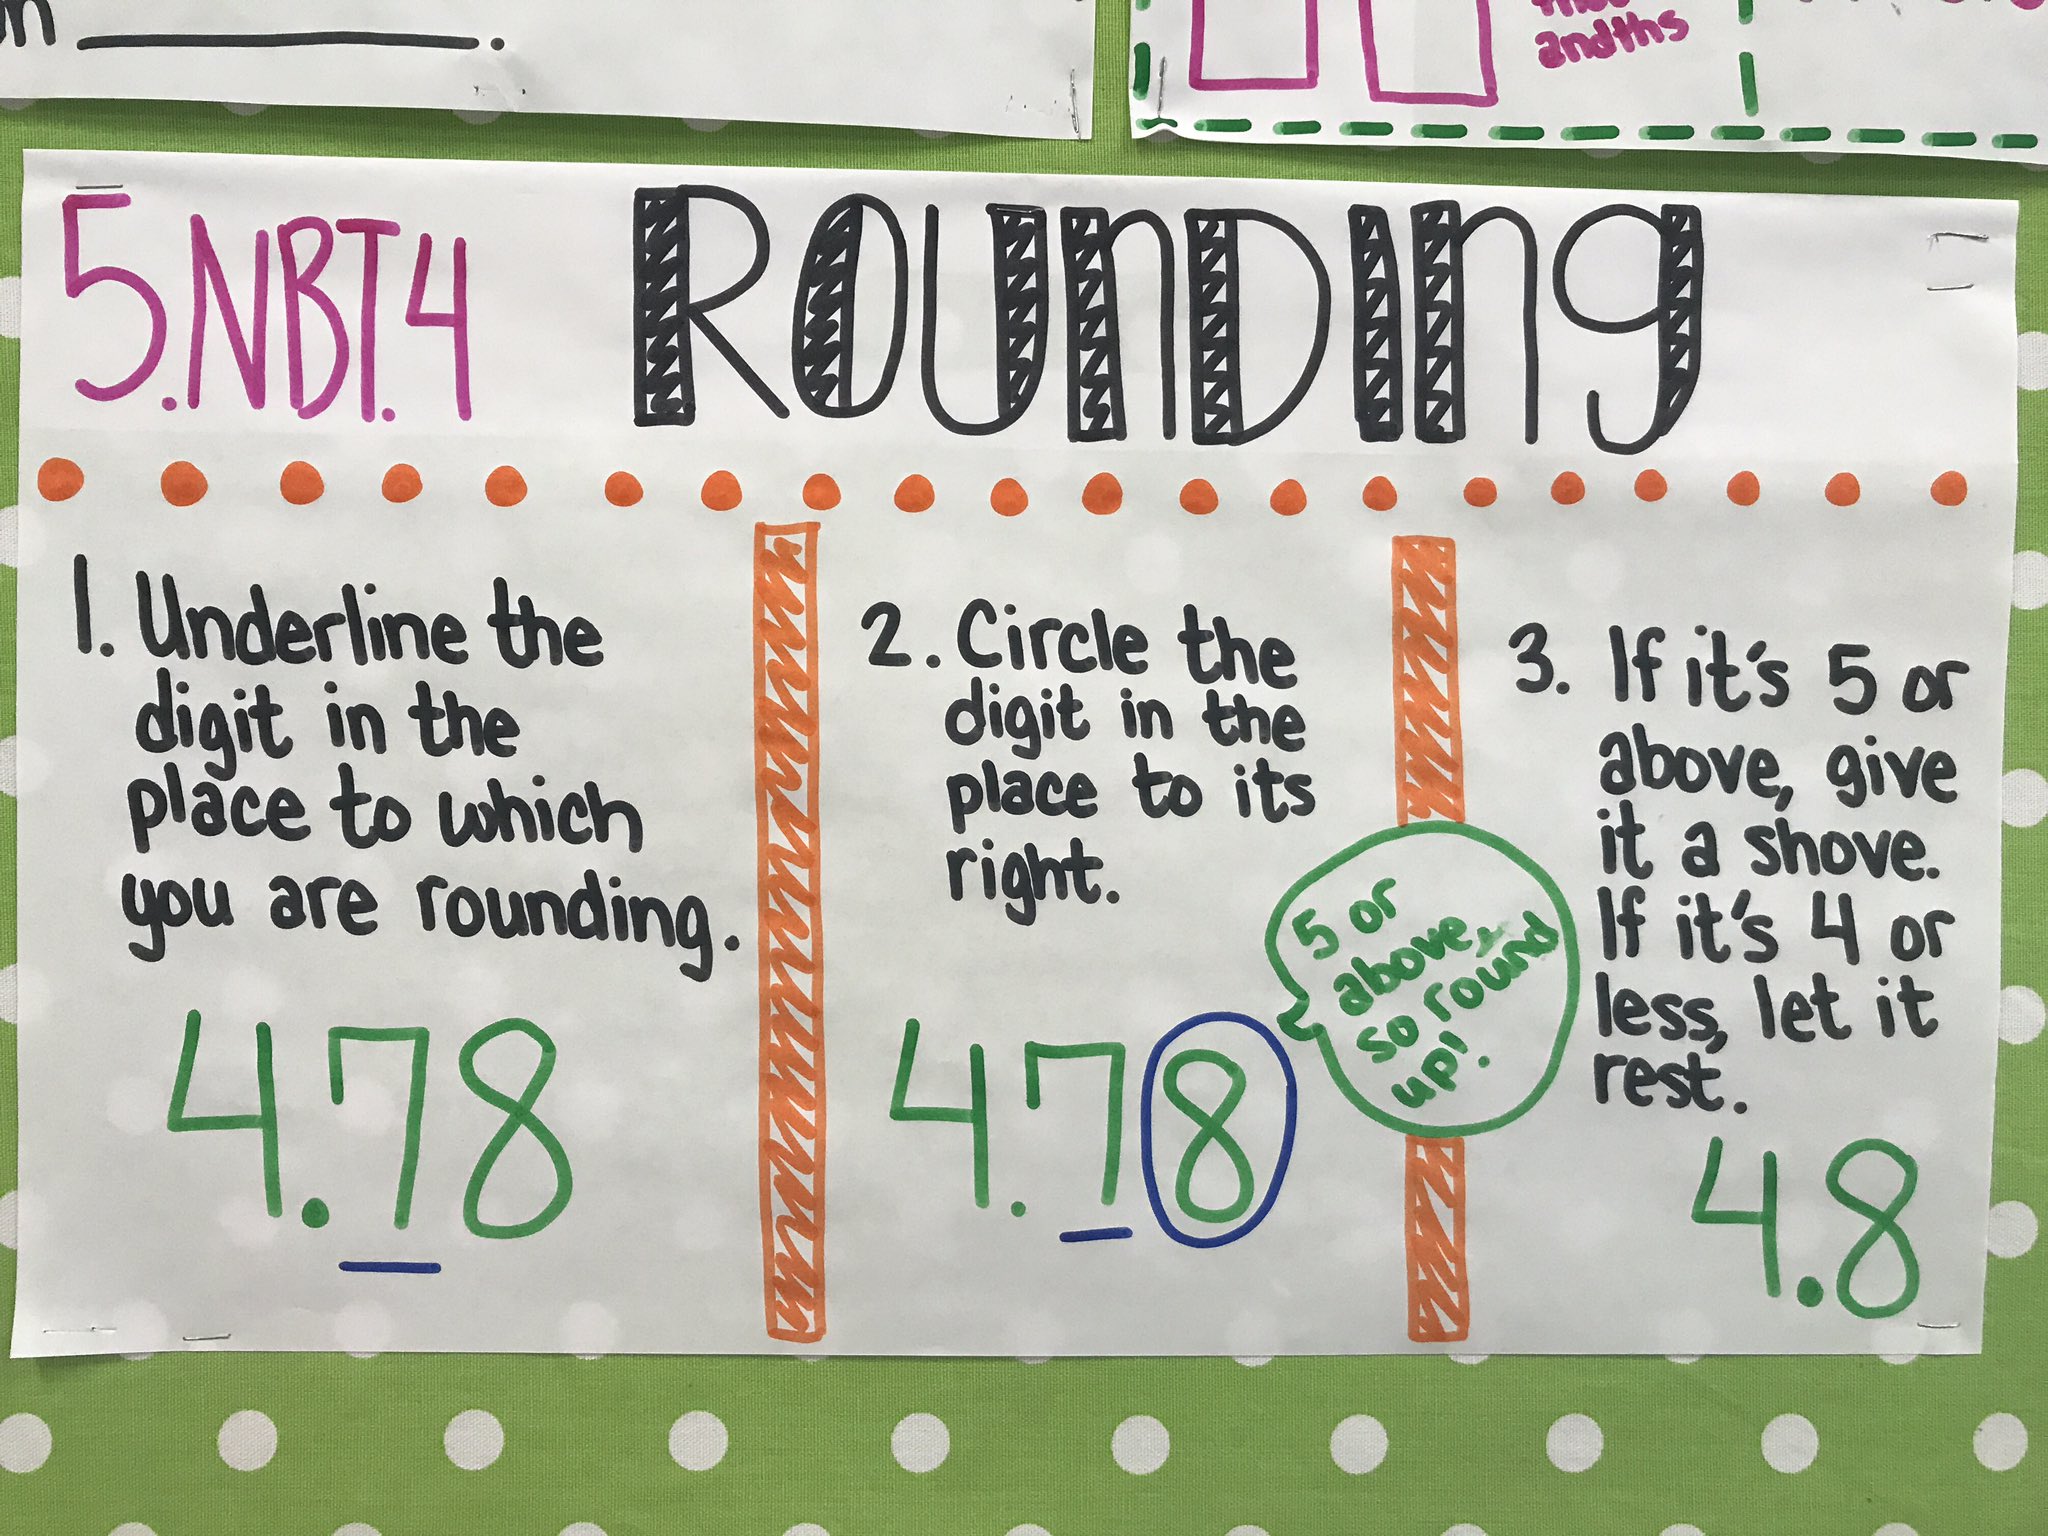 andths
5.NBT.4 ROUNDING
1. Underline the
digit in the
place to which
you are rounding.
4.78
2. Circle the
digit in the
place to its
right.
4.78
5 or
above,
so round
up!
3. If it's 5 or
above, give
it a shove.
If it's 4 or
less, let it
rest.
4.8